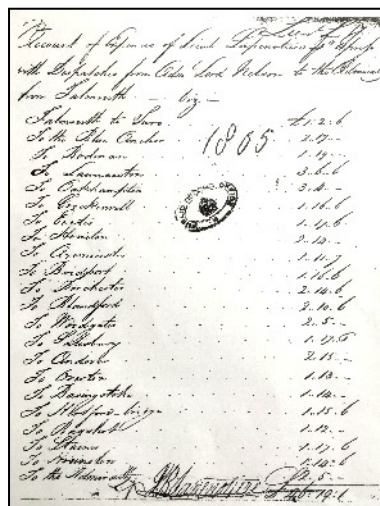 Account of Expences of Lieut Lapenotiere's Express
with Dispatches from Adm Lord Nelson to the Admiralty
from Falmouth — Viz —
1805
Falmouth to Truro £1.2.6
To the Blue Anchor 2.17.-
To Bodmin 1.19.-
To Launceston 3.6.6
To Oakhampton 3.4.-
To Crockernwell 1.16.6
To Exeter 1.17.6
To Honiton 2.14.-
To Axminster 1.11.
To Bridport 1.16.6
To Dorchester 2.14.6
To Blandford 2.10.6
To Woodyates 2.5.-
To Salisbury 1.17.6
To Andover 2.15.-
To Overton 1.13.-
To Basingstoke 1.10.-
To Hartford-bridge 1.15.6
To Bagshot 1.12.-
To Staines 1.17.6
To Hounslow 1.14.6
To the Admiralty 2.5.-
£46.19.1